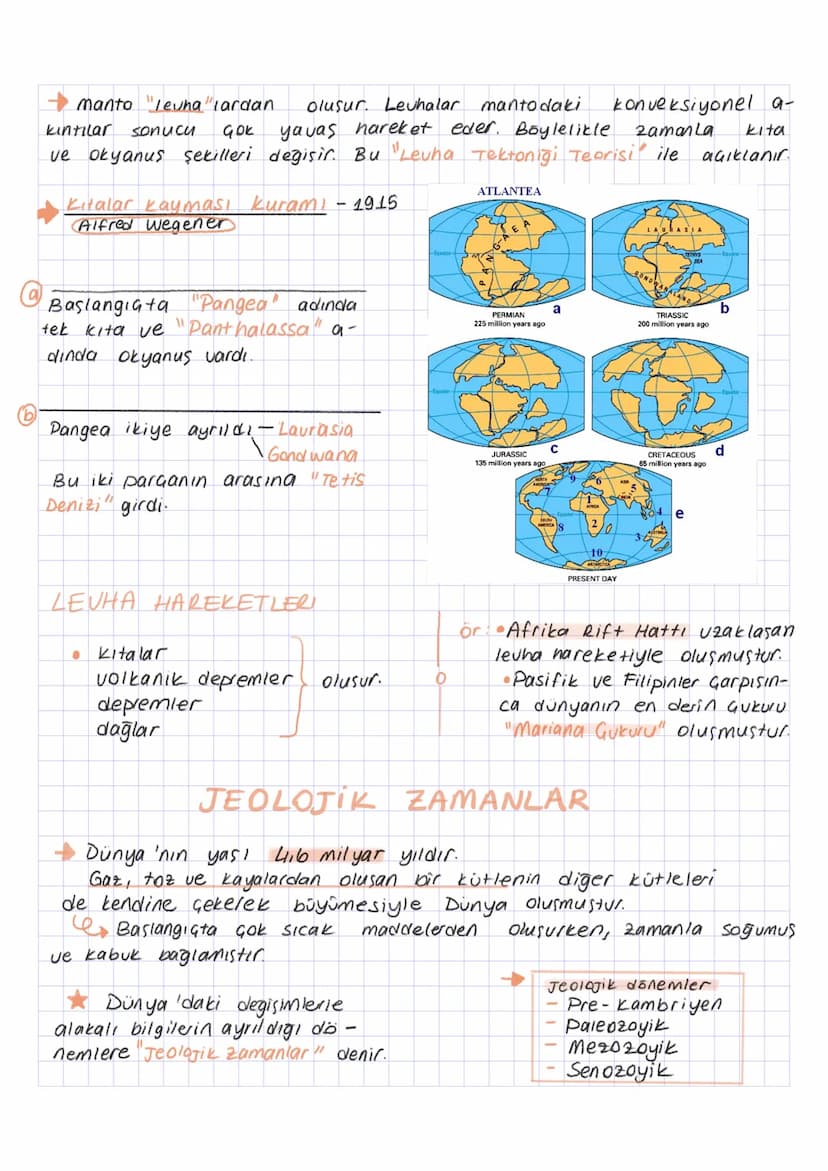 → Manto "levha"lardan oluşur. Levhalar mantodaki konveksiyonel a-
kıntılar sonucu çok yavaş hareket eder. Böylelikle zamanla kıta
ve okyanus şekilleri değişir. Bu "Levha Tektoniği Teorisi" ile açıklanır.
→ Kıtalar Kayması Kuramı - 1915
Alfred Wegener
a
Başlangıçta "Pangea" adında
tek kıta ve "Panthalassa" a-
dında okyanus vardı.
b
Pangea ikiye ayrıldı - Laurasia
Gondwana
Bu iki parçanın arasına "Tetis
Denizi" girdi.
ATLANTEA
PANGAEA
Equator
PERMIAN
225 million years ago
a
LAURASIA
TETHYS
SEA
Equator
GONDWANALAND
TRIASSIC
200 million years ago
b
Equator
JURASSIC
135 million years ago
c
Equator
CRETACEOUS
65 million years ago
d
NORTH
AMERICA
ASIA
INDIA
AFRICA
Equator
SOUTH
AMERICA
AUSTRALIA
ANTARCTICA
1
2
3
4
5
6
7
8
9
10
e
PRESENT DAY
LEVHA HAREKETLERİ
• Kıtalar
volkanik depremler
depremler
dağlar
oluşur.
ör: • Afrika Rift Hattı uzaklaşan
levha hareketiyle oluşmuştur.
• Pasifik ve Filipinler çarpışın-
ca dünyanın en derin çukuru
"Mariana Çukuru" oluşmuştur.
JEOLOJİK ZAMANLAR
→ Dünya'nın yaşı 4,6 milyar yıldır.
Gaz, toz ve kayalardan oluşan bir kütlenin diğer kütleleri
de kendine çekerek büyümesiyle Dünya oluşmuştur.
Başlangıçta çok sıcak maddelerden oluşurken, zamanla soğumuş
ve kabuk bağlamıştır.
★ Dünya'daki değişimlerle
alakalı bilgilerin ayrıldığı dö-
nemlere "Jeolojik Zamanlar" denir.
→ Jeolojik dönemler
- Pre-Kambriyen
- Paleozoyik
- Mezozoyik
- Senozoyik